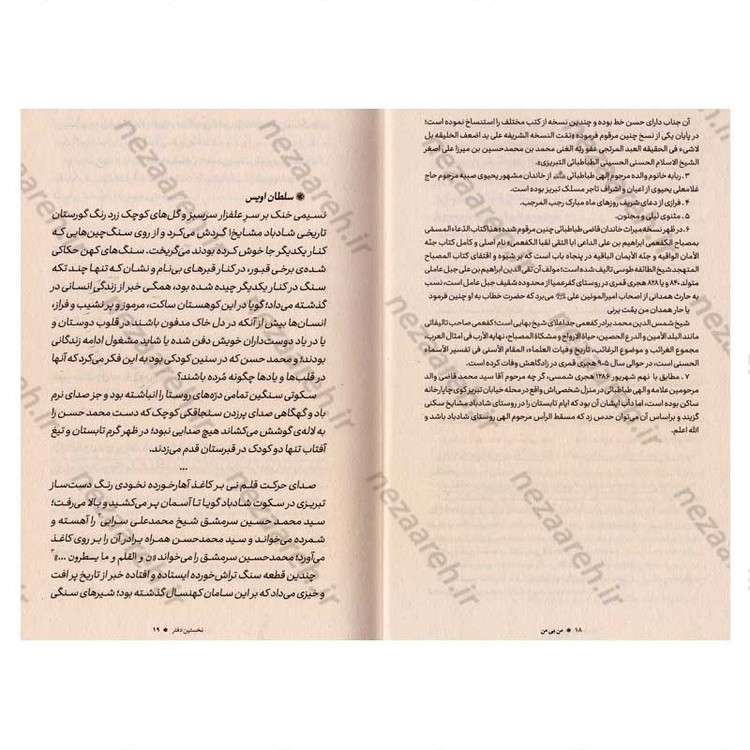 آن جناب دارای حسن خط بوده و چندین نسخه از کتب مختلف را استنساخ نموده است؛
در پایان یکی از نسخ چنین مرقوم فرموده «تمّت النسخه الشریفه علی ید اضعف الخلیقه بل
لاشیء فی الحقیقه العبد المرتجی عفو ربّه الغنی محمد بن محمدحسین بن میرزا علی اصغر
الشیخ الاسلام الحسنی الحسینی الطباطبائی التبریزی».
۳. ربابه خانوم والده مرحوم الهی طباطبائی از خاندان مشهور یحیوی صبیه مرحوم حاج
غلامعلی یحیوی از اعیان و اشراف تاجر مسلک تبریز بوده است.
۴. فرازی از دعای شریف روزهای ماه مبارک رجب المرجب.
۵. مثنوی لیلی و مجنون.
۶. در ظهر نسخه میراث خاندان قاضی طباطبائی چنین مرقوم شده «هذا کتاب الدّعاء المسمّی
بمصباح الکفعمی ابراهیم بن علی الداعی ابا التقی لقبا الکفعمی» نام اصلی و کامل کتاب جنّه
الأمان الواقیه و جنّه الأیمان الباقیه در پنجاه باب است که بر شیوه و اقتفای کتاب المصباح
المتهجد شیخ الطائفه طوسی تالیف شده است؛ مولف آن تقی الدین ابراهیم بن علی جبل عاملی
متولد ۸۴۰ و یا ۸۲۸ هجری قمری در روستای کفرعمیا از محدوده شقیف جبل عامل است، نسب
به حارث همدانی از اصحاب امیرالمومنین علی می‌برد که حضرت خطاب به او چنین فرمود
یا حار همدان من یمُت یرنی
شیخ شمس الدین محمد برادر کفعمی جد اعلای شیخ بهایی است؛ کفعمی صاحب تالیفاتی
مانند البلد الأمین و الدرع الحصین، حیاة الارواح و مشکاة المصباح، نهایه الأرب فی امثال العرب،
مجموع الغرائب و موضوع الرغائب، تاریخ وفیات العلماء، المقام الأسنی فی تفسیر الأسماء
الحسنی است، در حوالی سال ۹۰۵ هجری قمری در زادگاهش وفات کرده است.
۷. مطابق با نهم شهریور ۱۲۸۶ هجری شمسی، گر چه مرحوم آقا سید محمد قاضی والد
مرحومین علامه و الهی طباطبائی در منزل شخصی‌اش واقع در محله خیابان تبریز کوی چاپارخانه
ساکن بوده است، اما دأب ایشان آن بود که ایام تابستان را در روستای شادباد مشایخ سکنی
گزیند و براساس آن می‌توان حدس زد که مسقط الرأس مرحوم الهی روستای شادباد باشد و
الله اعلم.
۱۸ ● من بی من
سلطان اویس
نسیمی خنک بر سر علفزار سرسبز و گل‌های کوچک زرد رنگ گورستان
تاریخی شادباد مشایخ۱ گردش می‌کرد و از روی سنگ‌چین‌هایی که
کنار یکدیگر جا خوش کرده بودند می‌گریخت. سنگ‌های کهن حکاکی
شده‌ی برخی قبور، در کنار قبرهای بی‌نام و نشان که تنها چند تکه
سنگ در کنار یکدیگر چیده شده بود، همگی خبر از زندگی انسانی در
گذشته می‌داد؛ گویا در این کوهستان ساکت، مرموز و پر نشیب و فراز،
انسان‌ها بیش از آنکه در دل خاک مدفون باشند در قلوب دوستان و
یا در یاد دوست‌داران خویش دفن شده یا شاید مشغول ادامه زندگانی
بودند؛ و محمد حسن که در سنین کودکی بود به این فکر می‌کرد که آنها
در قلب‌ها و یادها چگونه مُرده باشند؟
سکوتی سنگین تمامی درّه‌های روستا را انباشته بود و جز صدای نرم
باد و گهگاهی صدای پرزدن سنجاقکی کوچک که دست محمد حسن را
به لاله‌ی گوشش می‌کشاند هیچ صدایی نبود؛ در ظهر گرم تابستان و تیغ
آفتاب تنها دو کودک در قبرستان قدم می‌زدند.
...
صدای حرکت قلم نی بر کاغذ آهارخورده نخودی رنگ دست‌ساز
تبریزی در سکوت شادباد گویا تا آسمان پر می‌کشید و بالا می‌رفت؛
سید محمد حسین سرمشق شیخ محمدعلی سرابی۲ را آهسته و
شمرده می‌خواند و سید محمدحسن همراه برادر آن را بر روی کاغذ
می‌آورد؛ محمدحسین سرمشق را می‌خواند «ن و القلم و ما یسطرون ...»۳
چندین قطعه سنگ تراش‌خورده ایستاده و افتاده خبر از تاریخ پر افت
و خیزی می‌داد که بر این سامان کهنسال گذشته بود؛ شیرهای سنگی
نخستین دفتر ● ۱۹
nezaareh.ir
nezaareh.ir
nezaareh.ir
nezaareh.ir
nezaareh.ir
nezaareh.ir